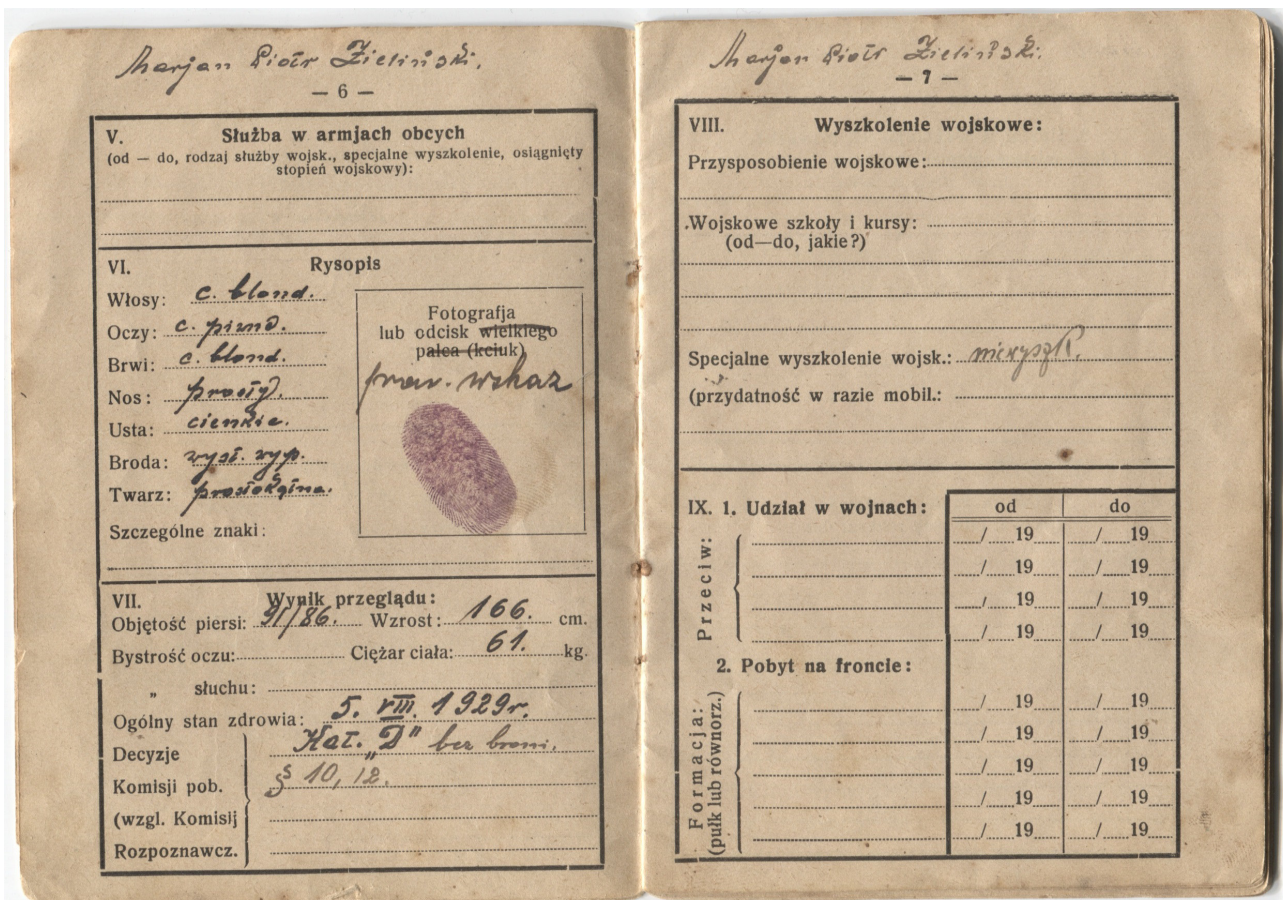 Marjan Piotr Zieliński.
— 6 —
V. Służba w armjach obcych
(od — do, rodzaj służby wojsk., specjalne wyszkolenie, osiągnięty
stopień wojskowy):
VI. Rysopis
Włosy: c. blond.
Oczy: c. piwne.
Brwi: c. blond.
Nos: prosty.
Usta: cienkie.
Broda: wyp.
Twarz:
Szczególne znaki:
Fotografja
lub odcisk wielkiego
palca (kciuk)
praw. wskaz
VII. Wynik przeglądu:
Objętość piersi: 91/86. Wzrost: 166. cm.
Bystrość oczu: Ciężar ciała: 61. kg.
„ słuchu:
Ogólny stan zdrowia: 5. VIII. 1929r.
Decyzje Kat. „D" bez broni.
Komisji pob. § 10, 12.
(wzgl. Komisij
Rozpoznawcz.
Marjan Piotr Zieliński.
— 7 —
VIII. Wyszkolenie wojskowe:
Przysposobienie wojskowe:
Wojskowe szkoły i kursy:
(od—do, jakie?)
Specjalne wyszkolenie wojsk.: niewyszk.
(przydatność w razie mobil.:
IX. 1. Udział w wojnach: od do
Przeciw:
/ 19 / 19
/ 19 / 19
/ 19 / 19
/ 19 / 19
2. Pobyt na froncie:
Formacja:
(pułk lub równorz.)
/ 19 / 19
/ 19 / 19
/ 19 / 19
/ 19 / 19
/ 19 / 19